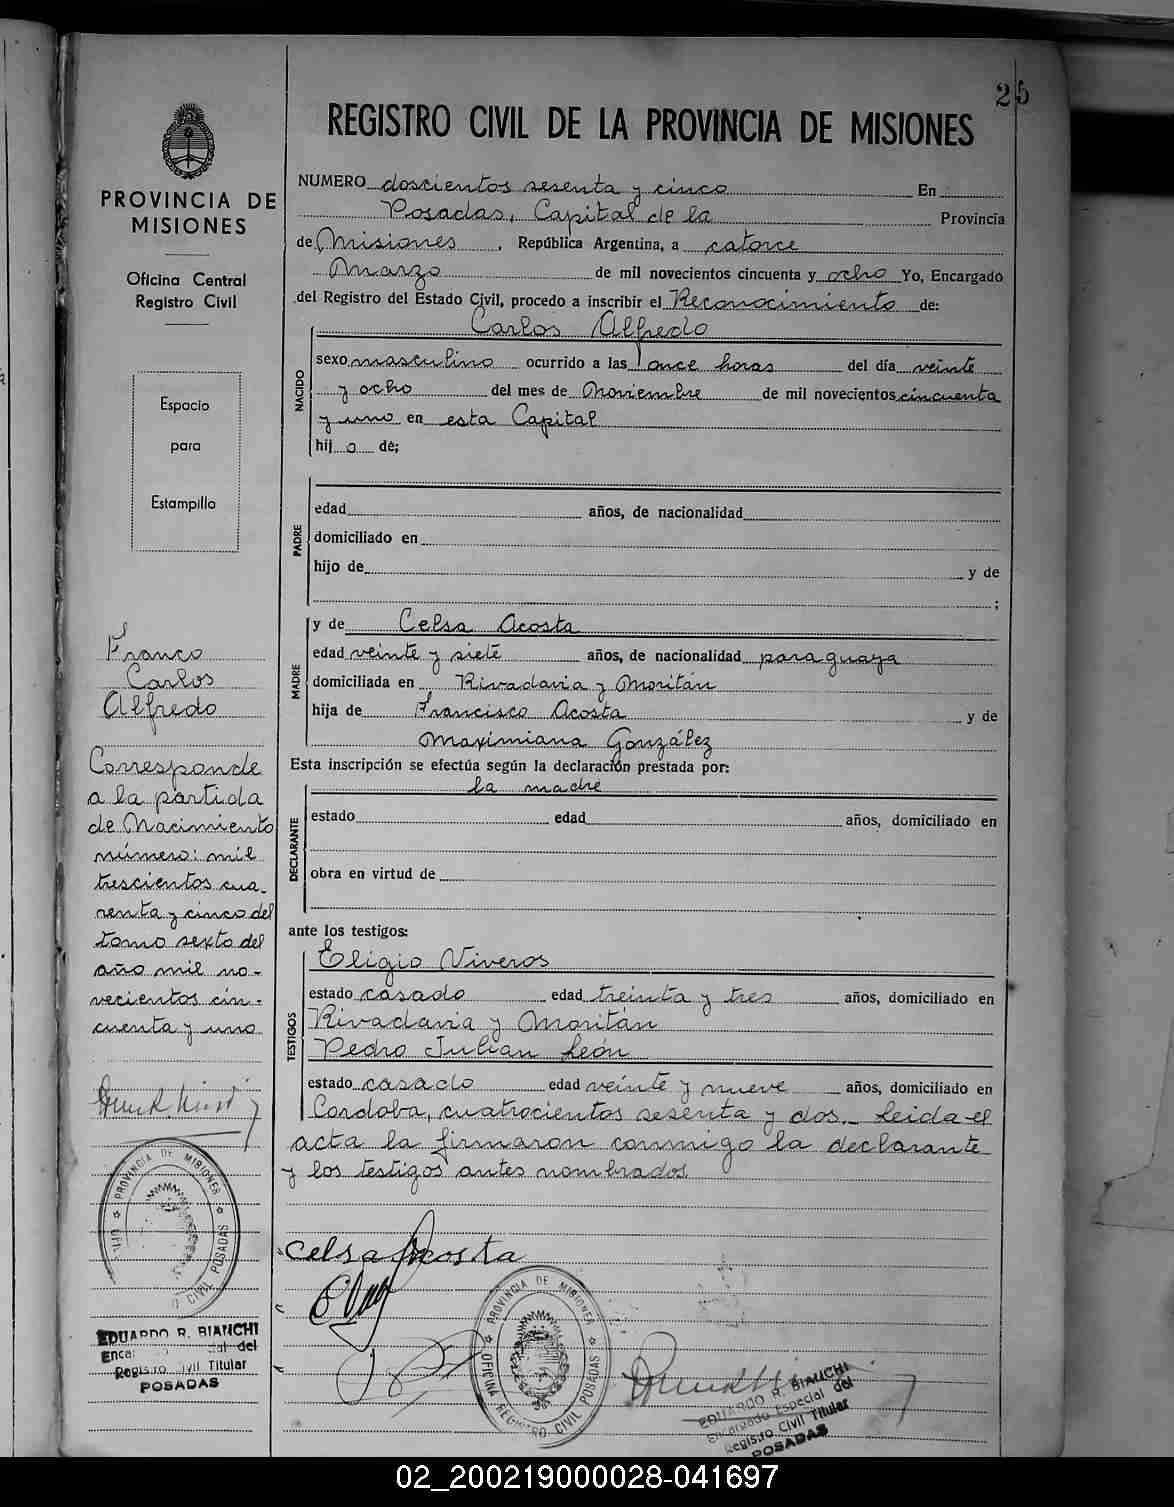 25
REGISTRO CIVIL DE LA PROVINCIA DE MISIONES
PROVINCIA DE
MISIONES
Oficina Central
Registro Civil
Espacio
para
Estampilla
Franco
Carlos
Alfredo
Corresponde
a la partida
de Nacimiento
número: mil
trescientos cua-
renta y cinco del
tomo sexto del
año mil no-
vecientos cin-
cuenta y uno
PROVINCIA DE MISIONES
CIVIL POSADAS
EDUARDO R. BIANCHI
del
Registro Civil Titular
POSADAS
NUMERO doscientos sesenta y cinco En
Posadas, Capital de la Provincia
de Misiones, República Argentina, a catorce
Marzo de mil novecientos cincuenta y ocho Yo, Encargado
del Registro del Estado Civil, procedo a inscribir el Reconocimiento de:
Carlos Alfredo
NACIDO
sexo masculino ocurrido a las once horas del día veinte
y ocho del mes de Noviembre de mil novecientos cincuenta
y uno en esta Capital
hijo de;
PADRE
edad años, de nacionalidad
domiciliado en
hijo de y de
;
MADRE
y de Celsa Acosta
edad veinte y siete años, de nacionalidad paraguaya
domiciliada en Rivadavia y Moritán
hija de Francisco Acosta y de
Maximiana González
Esta inscripción se efectúa según la declaración prestada por:
la madre
DECLARANTE
estado edad años, domiciliado en
obra en virtud de
ante los testigos:
TESTIGOS
Eligio Viveros
estado casado edad treinta y tres años, domiciliado en
Rivadavia y Moritán
Pedro Julian León
estado casado edad veinte y nueve años, domiciliado en
Cordoba, cuatrocientos sesenta y dos. Leida el
acta la firmaron conmigo la declarante
y los testigos antes nombrados.
Celsa Acosta
PROVINCIA DE MISIONES
OFICINA REGISTRO CIVIL POSADAS
EDUARDO R. BIANCHI
Encargado Especial del
Registro Civil Titular
POSADAS
02_200219000028-041697